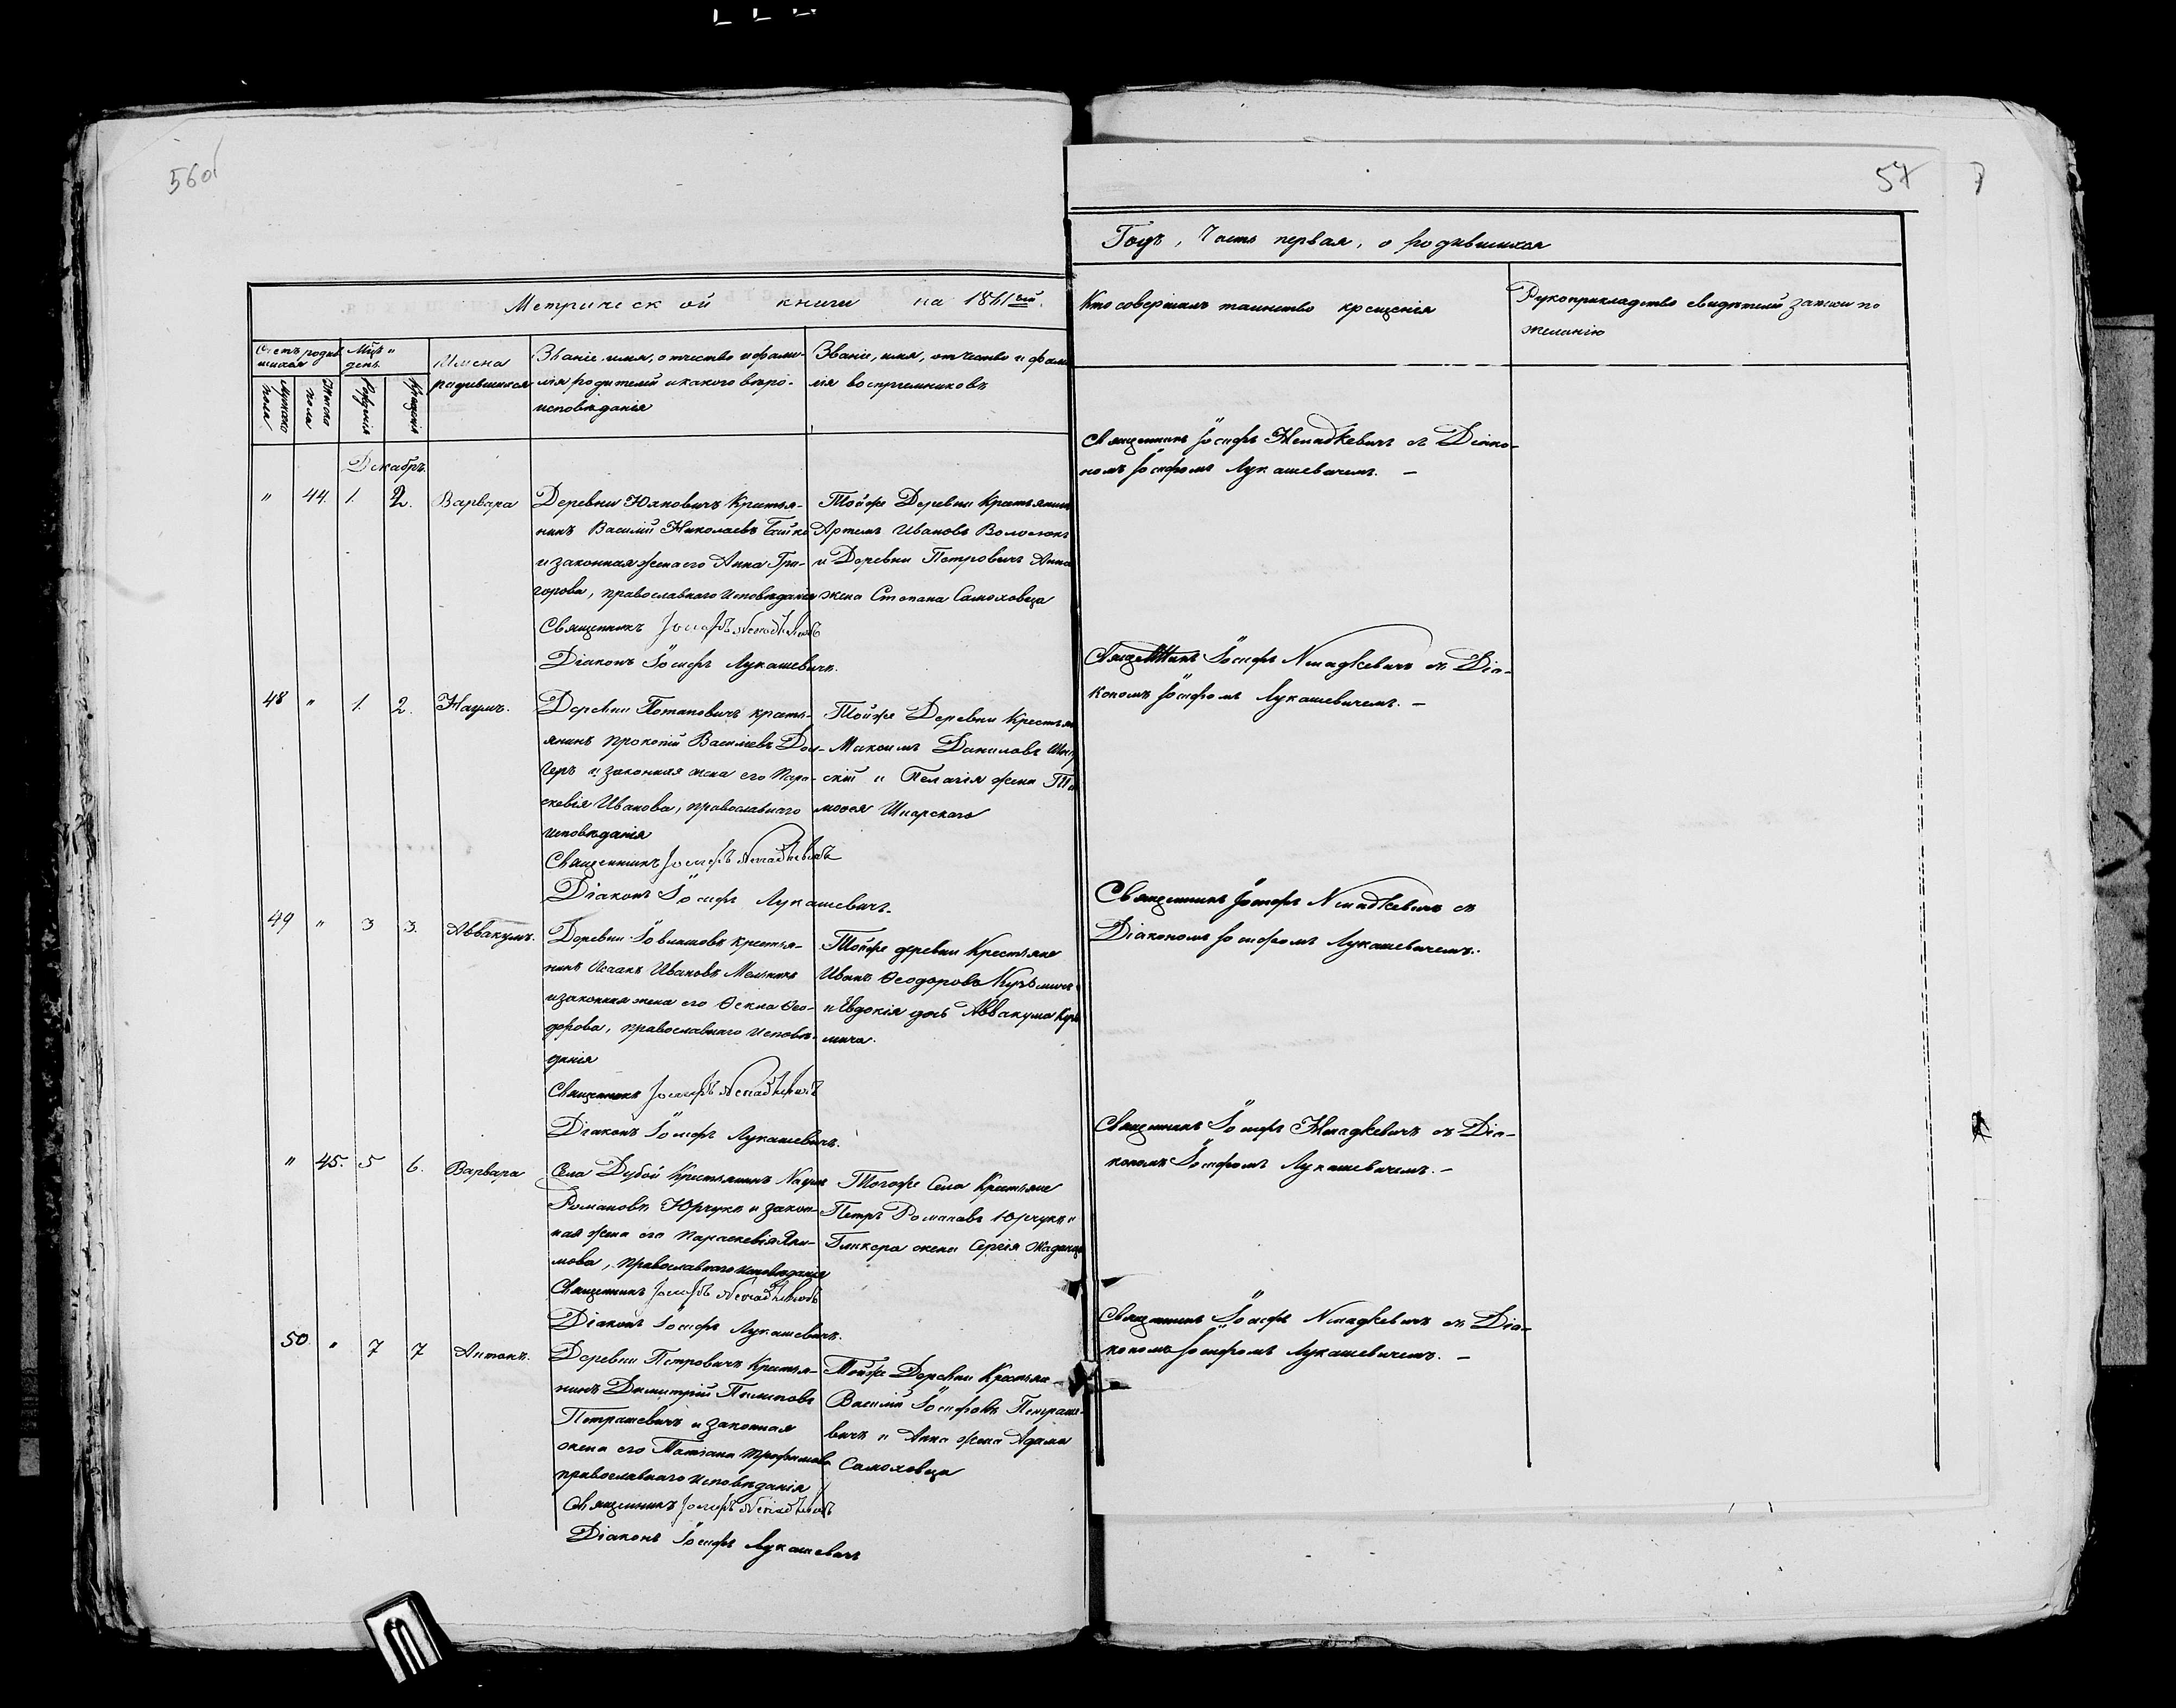 56об
57
7
Метрической книги на 1861ый.
Годъ, Часть первая, о родившихся
Счетъ родившихся
Мцъ и день
Имена родившихся
Званіе, имя, отчество и фамилія родителей и какого вѣроисповѣданія
Званіе, имя, отчество и фамилія воспріемниковъ
Кто совершалъ таинство крещенія
Рукоприкладство свидѣтелей записи по желанію
Мужеска пола
Женска пола
Рожденія
Крещенія
Декабрь
" 44. 1. 2. Варвара
Деревни Юхновичъ Крестья-
нинъ Василій Николаевъ Бойко
и законная жена его Анна Гри-
горова, православнаго Исповѣданія
Священникъ Іосифъ
Діаконъ Іосифъ Лукашевичъ.
Тойже Деревни Крестьянинъ
Артемъ Ивановъ
и Деревни Петровичъ Анна
жена Степана Самоховца
Священникъ Іосифъ съ Діако-
номъ Іосифомъ Лукашевичемъ. —
48 " 1. 2. Наумъ.
Деревни Потаповичъ кресть-
янинъ Прокопій Василіевъ
и законная жена его Пара-
скевія Иванова, православнаго
Исповѣданія
Священникъ Іосифъ
Діаконъ Іосифъ Лукашевичъ.
Тойже Деревни Крестьяне
Максимъ Даниловъ
скій и Пелагія жена
моѳея
Священникъ Іосифъ съ Діа-
кономъ Іосифомъ Лукашевичемъ. —
49 " 3 3. Аввакумъ.
Деревни крестья-
нинъ Исаакъ Ивановъ Мельникъ
и законная жена его Ѳекла Ѳео-
дорова, православнаго Исповѣ-
данія
Священникъ Іосифъ
Діаконъ Іосифъ Лукашевичъ.
Тойже деревни Крестьяне
Иванъ Ѳеодоровъ Кузьмичъ
и Евдокія дочь Аввакума Кузь
мича.
Священникъ Іосифъ съ
Діакономъ Іосифомъ Лукашевичемъ.
" 45. 5 6. Варвара
Села Дубой Крестьянинъ Наумъ
Романовъ Юрчукъ и закон-
ная жена его Параскевія Яки-
мова, православнаго исповѣданія
Священникъ Іосифъ
Діаконъ Іосифъ Лукашевичъ.
Тогоже Села Крестьяне
Петръ Романовъ Юрчукъ и
Гликера жена Сергія
Священникъ Іосифъ съ Діа-
кономъ Іосифомъ Лукашевичемъ. —
50. " 7 7 Антонъ.
Деревни Петровичъ Крестья-
нинъ Димитрій Пилиповъ
Петрашевичъ и законная
жена его Татіана Трофимова
православнаго Исповѣданія
Священникъ Іосифъ
Діаконъ Іосифъ Лукашевичъ
Тойже Деревни Крестьяне
Василій Іосифовъ Петраше-
вичъ и Анна жена Адама
Самоховца
Священникъ Іосифъ съ Діа-
кономъ Іосифомъ Лукашевичемъ. —